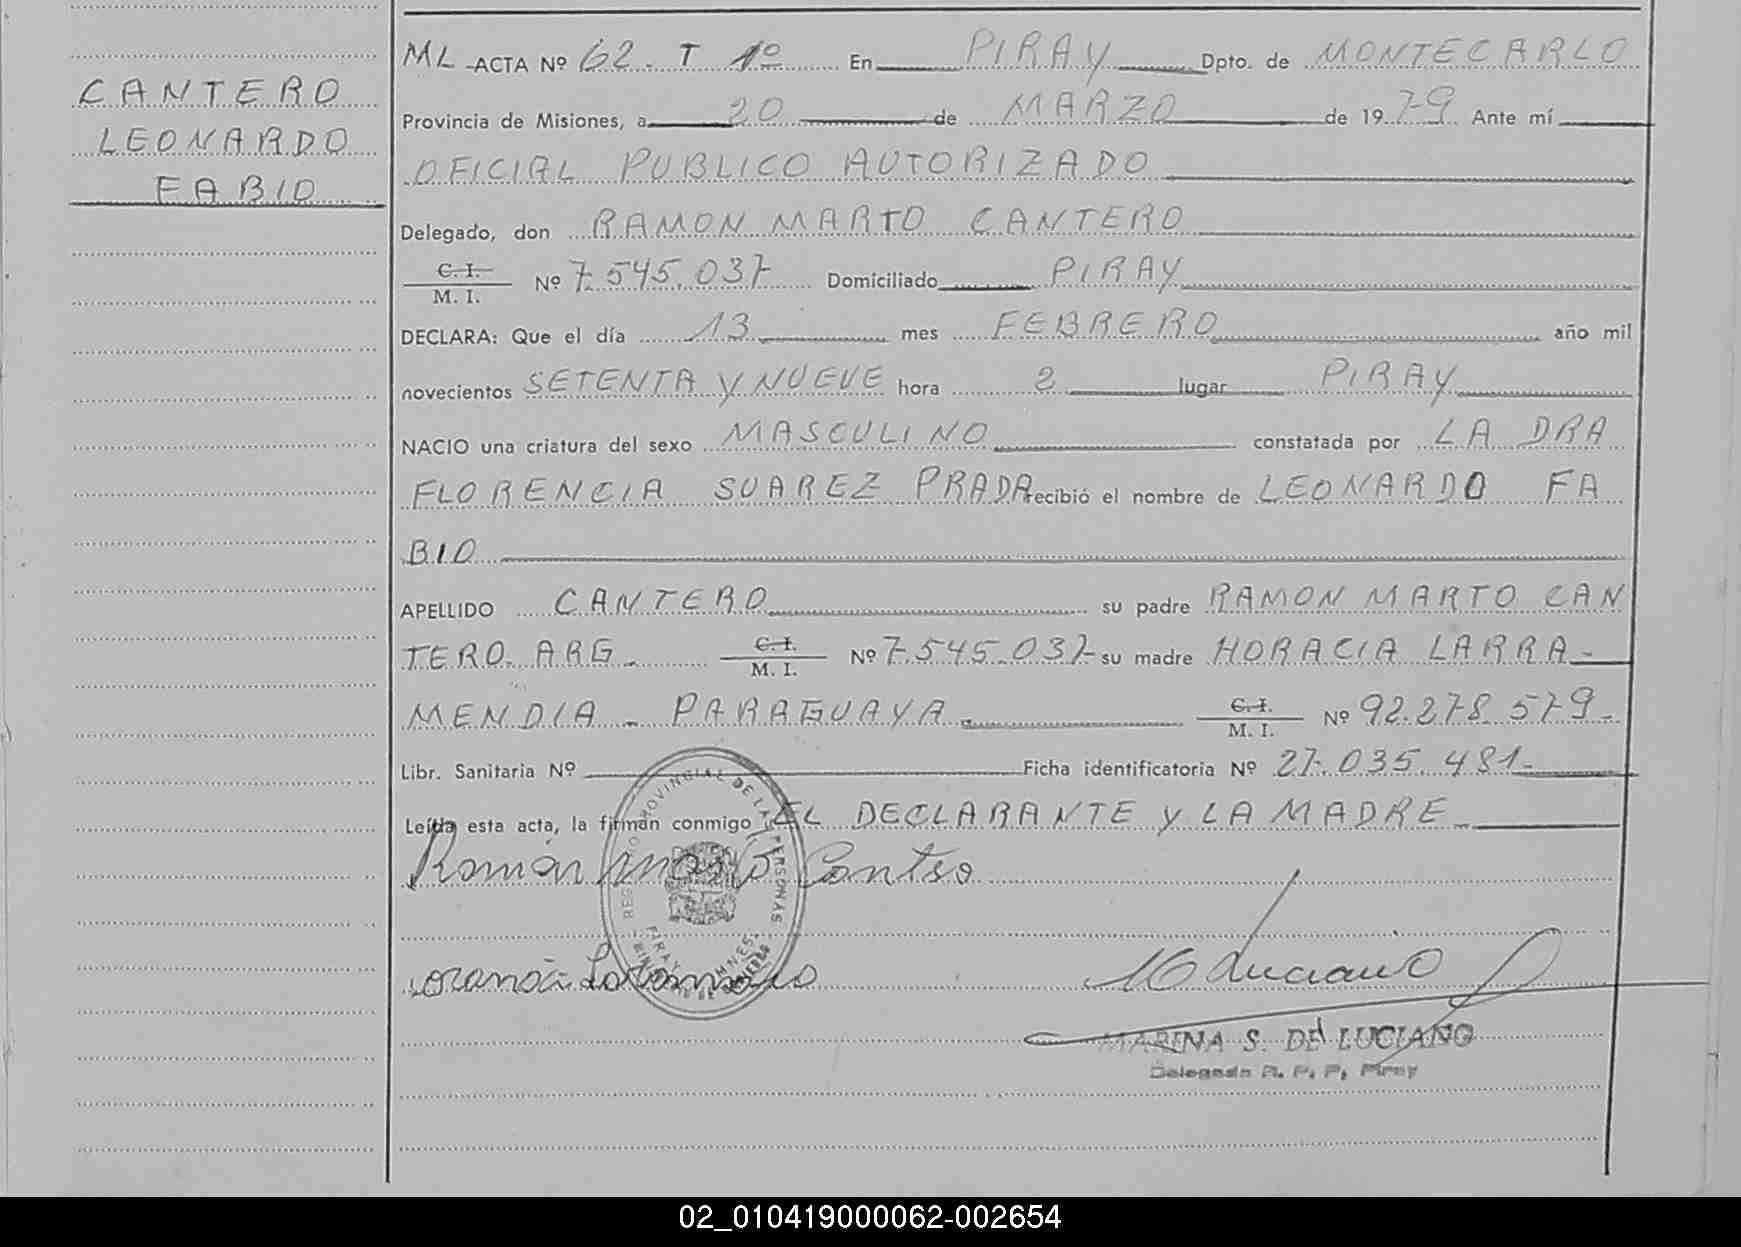 CANTERO
LEONARDO
FABIO
ML - ACTA Nº 62. T 1º En PIRAY Dpto. de MONTECARLO
Provincia de Misiones, a 20 de MARZO de 1979 Ante mí
OFICIAL PUBLICO AUTORIZADO
Delegado, don RAMON MARTO CANTERO
C. I.
M. I. Nº 7.545.037 Domiciliado PIRAY
DECLARA: Que el día 13 mes FEBRERO año mil
novecientos SETENTA Y NUEVE hora 2 lugar PIRAY
NACIO una criatura del sexo MASCULINO constatada por LA DRA
FLORENCIA SUAREZ PRADA recibió el nombre de LEONARDO FA
BIO
APELLIDO CANTERO su padre RAMON MARTO CAN
TERO. ARG. C. I.
M. I. Nº 7.545.037 su madre HORACIA LARRA-
MENDIA - PARAGUAYA. C. I.
M. I. Nº 92.278.579-
Libr. Sanitaria Nº Ficha identificatoria Nº 27.035.481-
Leída esta acta, la firman conmigo EL DECLARANTE Y LA MADRE
Ramón Marto Cantero
PROVINCIAL DE LAS PERSONAS
PIRAY MNES.
MARINA S. DE LUCIANO
Delegada R. P. P. Piray
02_010419000062-002654